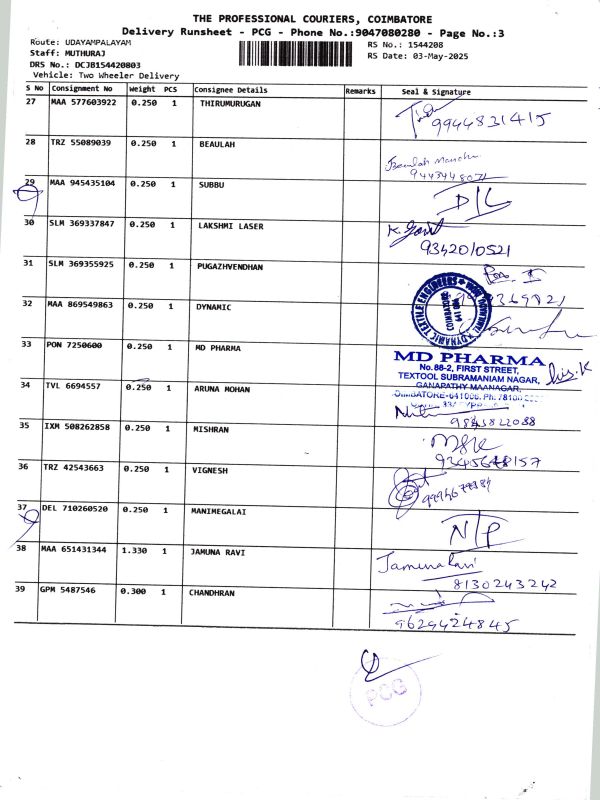 THE PROFESSIONAL COURIERS, COIMBATORE
Delivery Runsheet - PCG - Phone No.:9047080280 - Page No.:3
Route: UDAYAMPALAYAM
RS No.: 1544208
Staff: MUTHURAJ
RS Date: 03-May-2025
DRS No.: DCJB154420803
Vehicle: Two Wheeler Delivery
S No Consignment No Weight PCS Consignee Details Remarks Seal & Signature
27 MAA 577603922 0.250 1 THIRUMURUGAN
9944831415
28 TRZ 55089039 0.250 1 BEAULAH
9443448071
29 MAA 945435104 0.250 1 SUBBU D/L
30 SLM 369337847 0.250 1 LAKSHMI LASER
9342010521
31 SLM 369355925 0.250 1 PUGAZHVENDHAN
32 MAA 869549863 0.250 1 DYNAMIC
DYNAMIC TEXTILE ENGINEERS
COIMBATORE
33 PON 7250600 0.250 1 MD PHARMA
MD PHARMA
No.88-2, FIRST STREET,
TEXTOOL SUBRAMANIAM NAGAR,
GANAPATHY MAANAGAR,
COIMBATORE-641006. Ph:
34 TVL 6694557 0.250 1 ARUNA MOHAN
35 IXM 508262858 0.250 1 MISHRAN
36 TRZ 42543663 0.250 1 VIGNESH
37 DEL 710260520 0.250 1 MANIMEGALAI N/P
38 MAA 651431344 1.330 1 JAMUNA RAVI Jamuna Ravi
8130243242
39 GPM 5487546 0.300 1 CHANDHRAN
9629424845
PCG